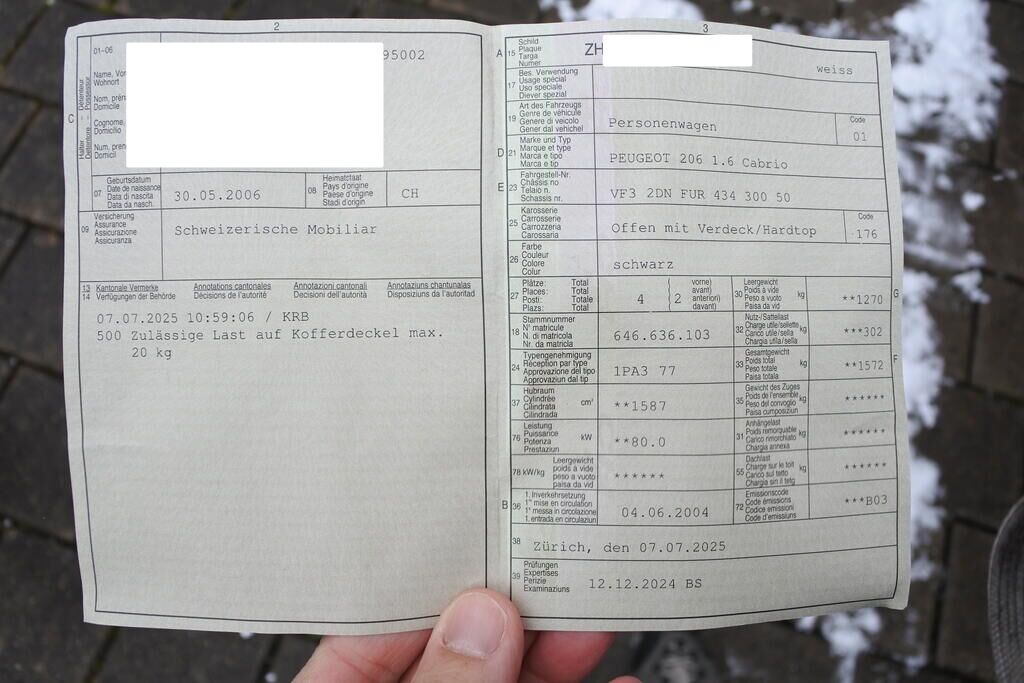 2
01-06
95002
Détenteur
Possessur
Halter
Detentore
C
Name, Vor
Wohnort
Nom, prén
Domicile
Cognome,
Domicilio
Num, pren
Domicil
07
Geburtsdatum
Date de naissance
Data di nascita
Data da nasch.
30.05.2006
08
Heimatstaat
Pays d'origine
Paese d'origine
Stadi d'origin
CH
09
Versicherung
Assurance
Assicurazione
Assicuranza
Schweizerische Mobiliar
13 Kantonale Vermerke Annotations cantonales Annotazioni cantonali Annotaziuns chantunalas
14 Verfügungen der Behörde Décisions de l'autorité Decisioni dell'autorità Disposiziuns da l'autoritad
07.07.2025 10:59:06 / KRB
500 Zulässige Last auf Kofferdeckel max.
20 kg
3
A 15
Schild
Plaque
Targa
Numer
ZH
weiss
17
Bes. Verwendung
Usage spécial
Uso speciale
Diever spezial
19
Art des Fahrzeugs
Genre de véhicule
Genere di veicolo
Gener dal vehichel
Personenwagen
Code
01
D 21
Marke und Typ
Marque et type
Marca e tipo
Marca e tip
PEUGEOT 206 1.6 Cabrio
E 23
Fahrgestell-Nr.
Châssis no
Telaio n.
Schassis nr.
VF3 2DN FUR 434 300 50
25
Karosserie
Carrosserie
Carrozzeria
Carossaria
Offen mit Verdeck/Hardtop
Code
176
26
Farbe
Couleur
Colore
Colur
schwarz
27
Plätze: Total
Places: Total
Posti: Totale
Plazs: Total
4
( vorne)
2 avant)
anteriori)
davant)
30
Leergewicht
Poids à vide
Peso a vuoto
Paisa da vid
kg
**1270
G
18
Stammnummer
N° matricule
N. di matricola
Nr. da matricla
646.636.103
32
Nutz-/Sattellast
Charge utile/sellette
Carico utile/sella
Chargia utila/sella
kg
***302
24
Typengenehmigung
Réception par type
Approvazione del tipo
Approvaziun dal tip
1PA3 77
33
Gesamtgewicht
Poids total
Peso totale
Paisa totala
kg
**1572
F
37
Hubraum
Cylindrée
Cilindrata
Cilindrada
cm³
**1587
35
Gewicht des Zuges
Poids de l'ensemble
Peso del convoglio
Paisa cumposiziun
kg
******
76
Leistung
Puissance
Potenza
Prestaziun
kW
**80.0
31
Anhängelast
Poids remorquable
Carico rimorchiato
Chargia annexa
kg
******
78 kW/kg
Leergewicht
poids à vide
peso a vuoto
paisa da vid
******
55
Dachlast
Charge sur le toit
Carico sul tetto
Chargia sin il tetg
kg
******
B 36
1. Inverkehrsetzung
1re mise en circulation
1a messa in circolazione
1. entrada en circulaziun
04.06.2004
72
Emissionscode
Code émissions
Codice emissioni
Code d'emissiuns
***B03
38
Zürich, den 07.07.2025
39
Prüfungen
Expertises
Perizie
Examinaziuns
12.12.2024 BS